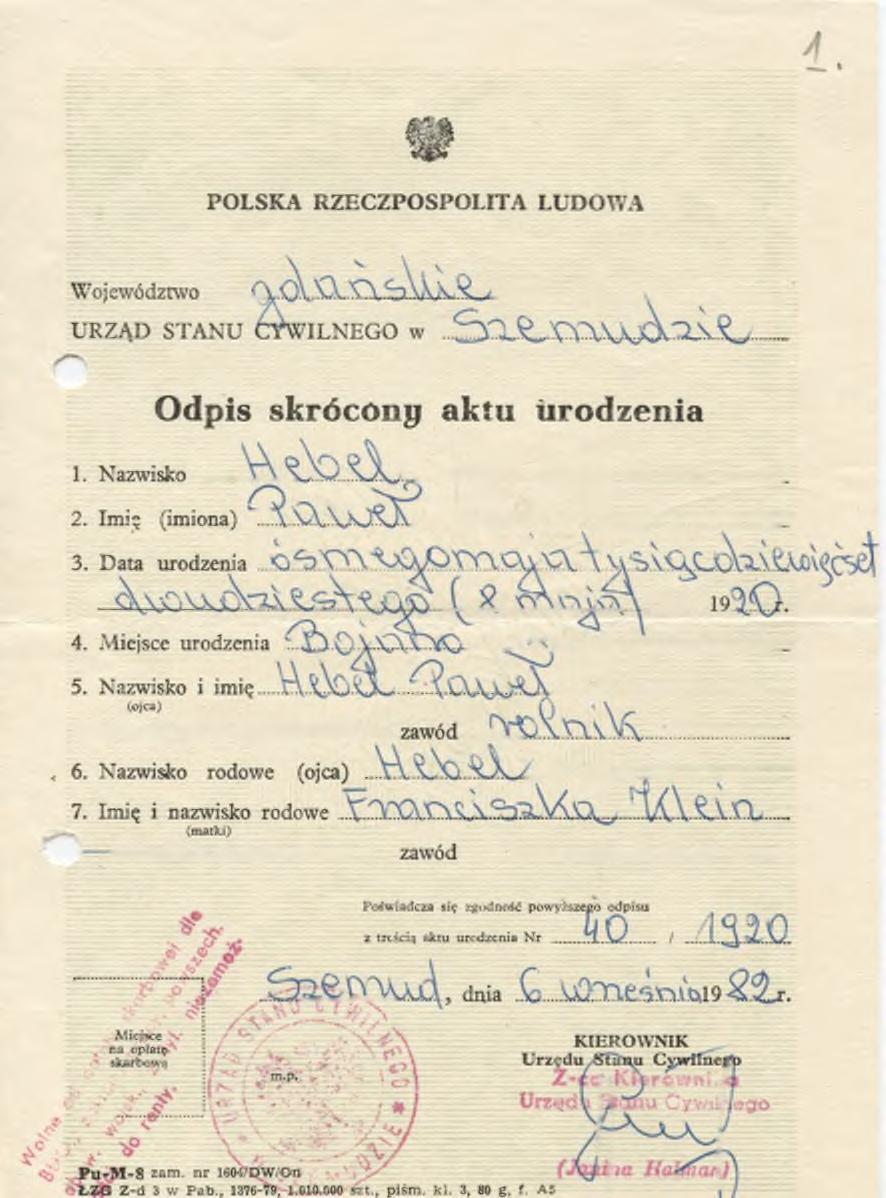 1.
POLSKA RZECZPOSPOLITA LUDOWA
Województwo gdańskie
URZĄD STANU CYWILNEGO w Szemudzie
Odpis skrócony aktu urodzenia
1. Nazwisko Hebel
2. Imię (imiona) Paweł
3. Data urodzenia ósmego maja tysiąc dziewięćset
dwudziestego (8 maja) 1920 r.
4. Miejsce urodzenia Bojano
5. Nazwisko i imię Hebel Paweł
(ojca)
zawód rolnik
6. Nazwisko rodowe (ojca) Hebel
7. Imię i nazwisko rodowe Franciszka Klein
(matki)
zawód
Poświadcza się zgodność powyższego odpisu
z treścią aktu urodzenia Nr 40 / 1920
Szemud, dnia 6 września 1982 r.
Miejsce
na opłatę
skarbową
m.p.
URZĄD STANU CYWILNEGO
KIEROWNIK
Urzędu Stanu Cywilnego
Z-ca Kierownika
Urzędu Stanu Cywilnego
(Janina Halman)
Wolne od opłaty skarbowej dla
do renty.
Pu-M-8 zam. nr 1604/DW/On
ŁZG Z-d 3 w Pab., 1376-79, 1.010.000 szt., piśm. kl. 3, 80 g, f. A5